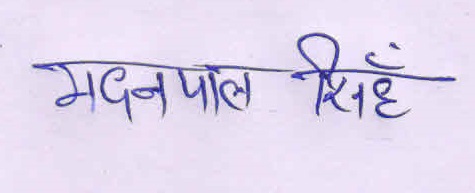 मदनपाल सिहँ